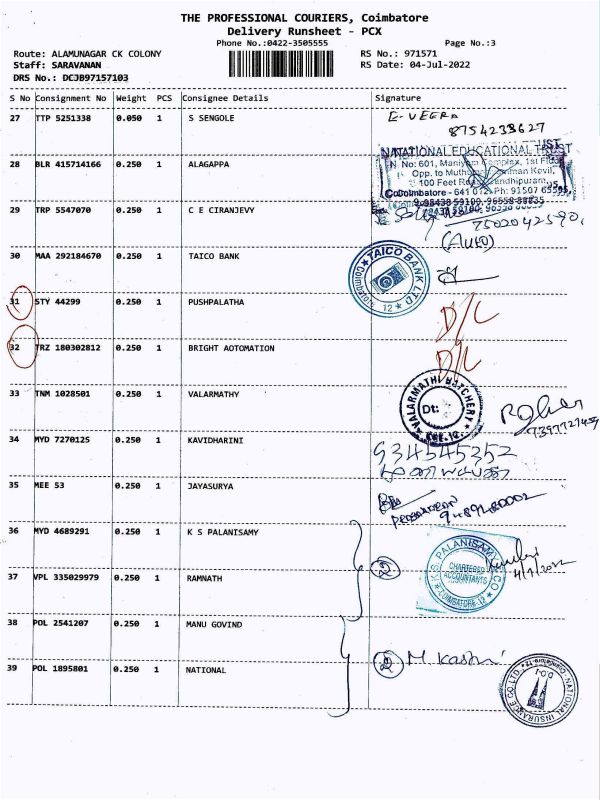 THE PROFESSIONAL COURIERS, Coimbatore
Delivery Runsheet - PCX
Phone No.:0422-3505555 Page No.:3
Route: ALAMUNAGAR CK COLONY RS No.: 971571
Staff: SARAVANAN RS Date: 04-Jul-2022
DRS No.: DCJB97157103
S No Consignment No Weight PCS Consignee Details Signature
27 TTP 5251338 0.050 1 S SENGOLE E-VEERA
8754238627
NATIONAL EDUCATIONAL TRUST
28 BLR 415714166 0.250 1 ALAGAPPA No: 601, Complex, 1st Floor
Opp. to Kovil,
100 Feet Gandhipuram,
Coimbatore - 641 012 Ph: 91507
29 TRP 5547070 0.250 1 C E CIRANJEVY 98438 59100, 96558 88835
7502042590,
(Auto)
30 MAA 292184670 0.250 1 TAICO BANK TAICO BANK LTD
Coimbatore - 12
31 STY 44299 0.250 1 PUSHPALATHA D/L
32 TRZ 180302812 0.250 1 BRIGHT AOTOMATION D/L
33 TNM 1028501 0.250 1 VALARMATHY VALARMATHI HATCHERY
Dt:
CBE.12.
34 MYD 7270125 0.250 1 KAVIDHARINI 934545352
35 MEE 53 0.250 1 JAYASURYA
36 MYD 4689291 0.250 1 K S PALANISAMY K.S. PALANISAMY & CO
CHARTERED
ACCOUNTANTS
COIMBATORE-12
4/7/2022
37 VPL 335029979 0.250 1 RAMNATH 2
38 POL 2541207 0.250 1 MANU GOVIND
39 POL 1895801 0.250 1 NATIONAL 2 M Kashni
NATIONAL INSURANCE CO. LTD.
D.O.I